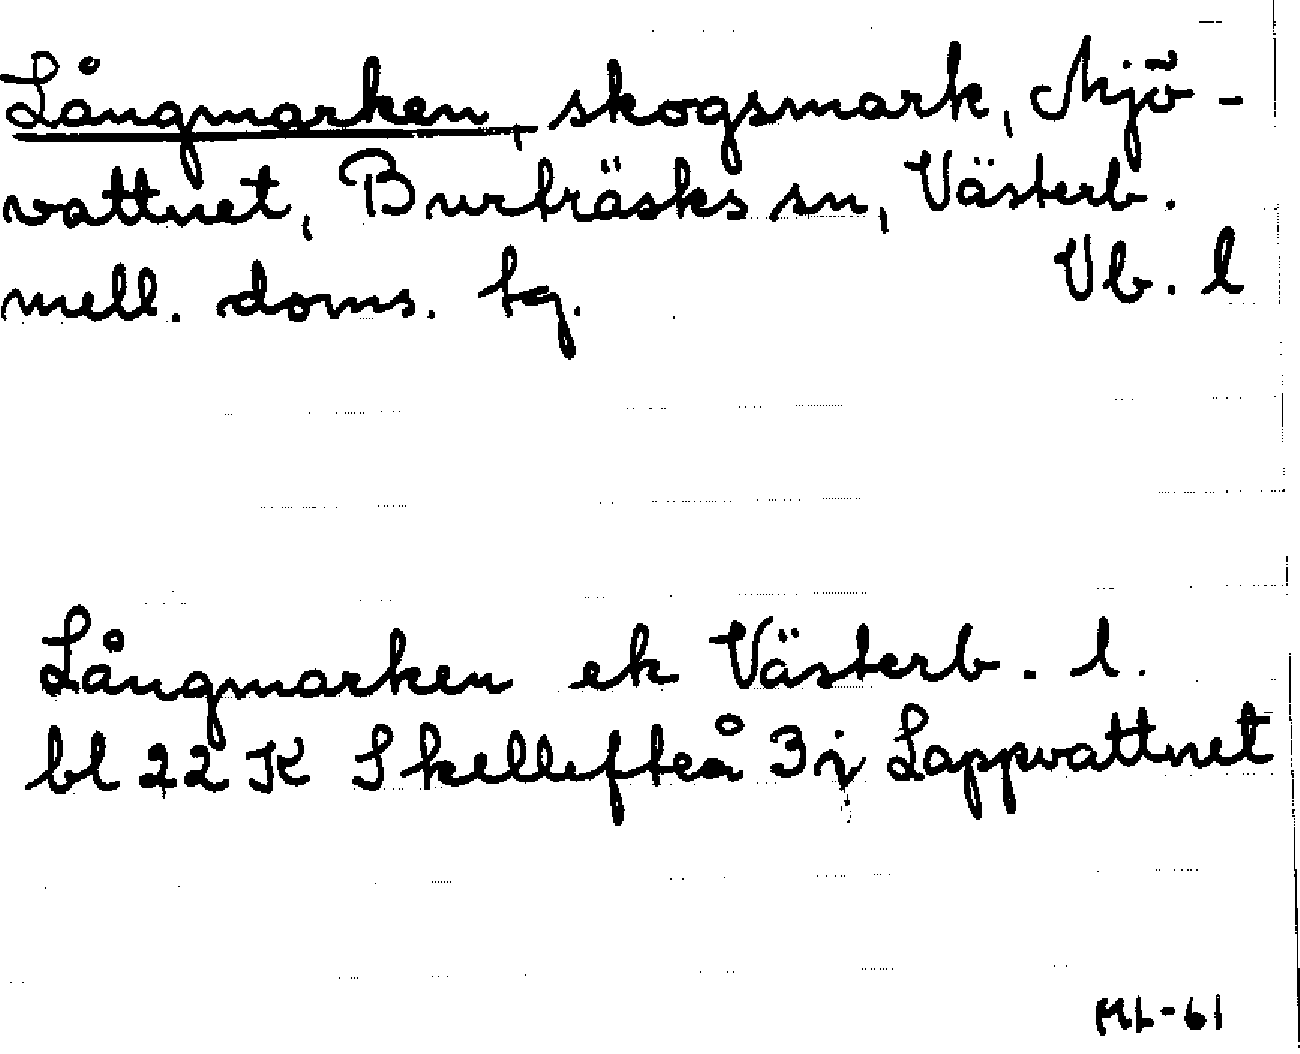 Långmarken, skogsmark, Mjö-
vattnet, Burträsks sn, Västerb.
mell. doms. tg. Vb. l
Långmarken ek Västerb. l.
bl 22 K Skellefteå 3 j Lappvattnet
ML-61